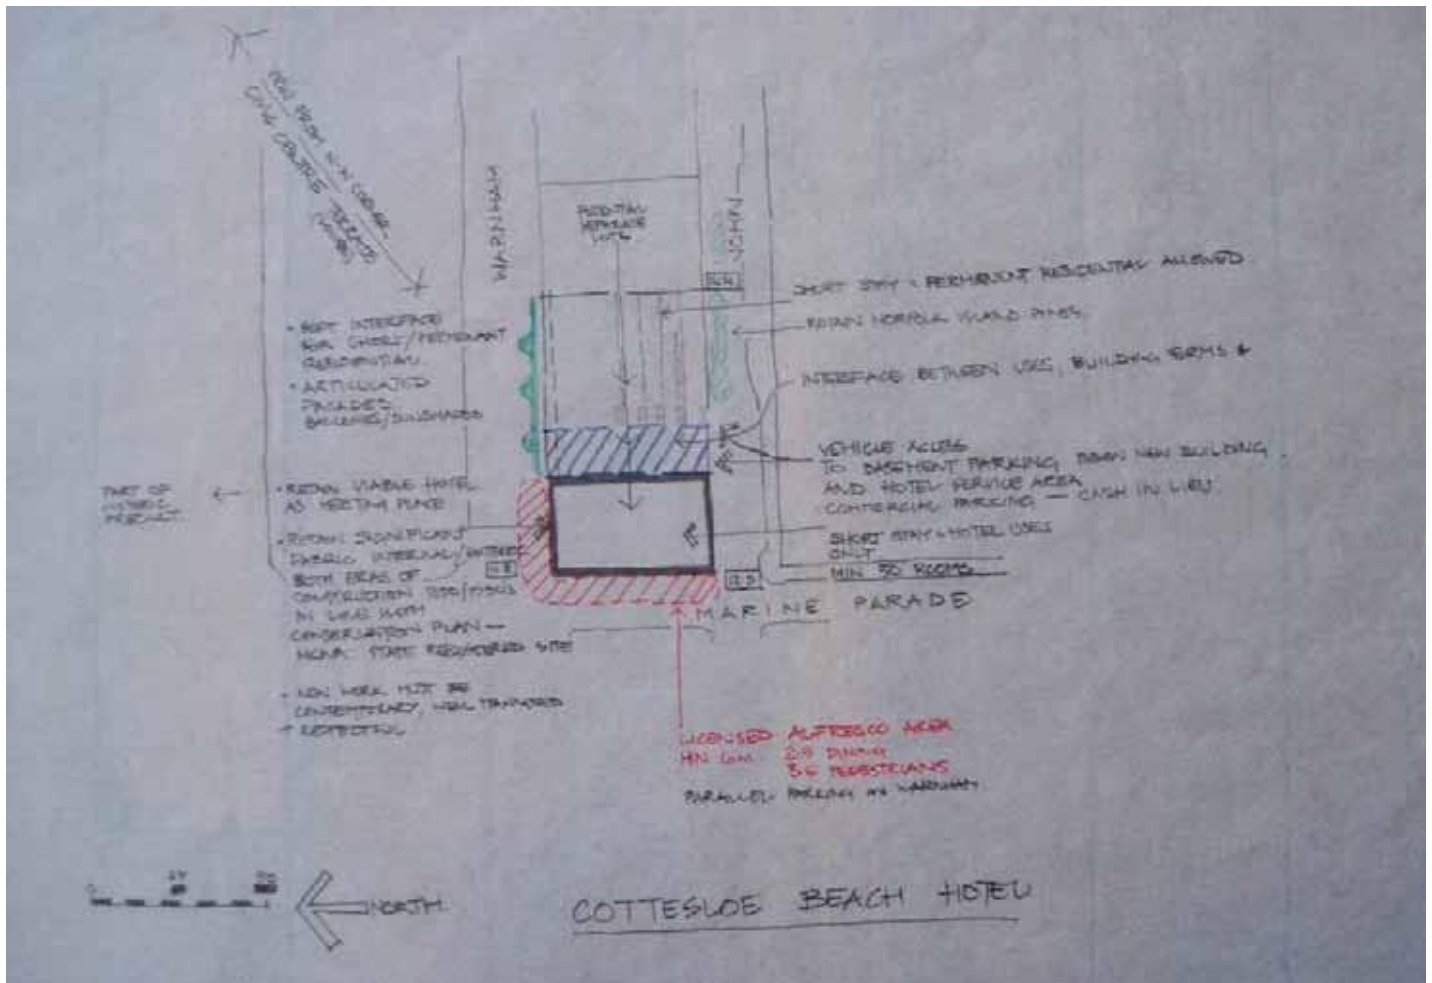 VIEW FROM
CIVIC CENTRE
WARNHAM
JOHN
POTENTIAL
SEPARATE
LOTS
SHORT STAY + PERMANENT RESIDENTIAL ALLOWED
RETAIN NORFOLK ISLAND PINES
INTERFACE BETWEEN USES, BUILDING FORMS &
VEHICLE ACCESS
TO BASEMENT PARKING NEW BUILDING
AND HOTEL SERVICE AREA
COMMERCIAL PARKING — CASH IN LIEU
SHORT STAY + HOTEL USES
ONLY
MIN 50 ROOMS
MARINE PARADE
• SOFT INTERFACE
FOR SHORT/PERMENANT
RESIDENTIAL
• ARTICULATED
FACADES
BALCONIES/SUNSHADES
PART OF
HISTORIC
PRECINCT
• RETAIN VIABLE HOTEL
AS MEETING PLACE
• RETAIN SIGNIFICANT
FABRIC INTERNAL/
BOTH ERAS OF
CONSTRUCTION
IN LINE WITH
CONSERVATION PLAN —
STATE REGISTERED SITE
• NEW WORK MUST BE
CONTEMPORARY, WELL
+ RESPECTFUL
LICENSED ALFRESCO AREA
2.9 DINING
3.6 PEDESTRIANS
PARALLEL PARKING ON WARNHAM
NORTH
COTTESLOE BEACH HOTEL